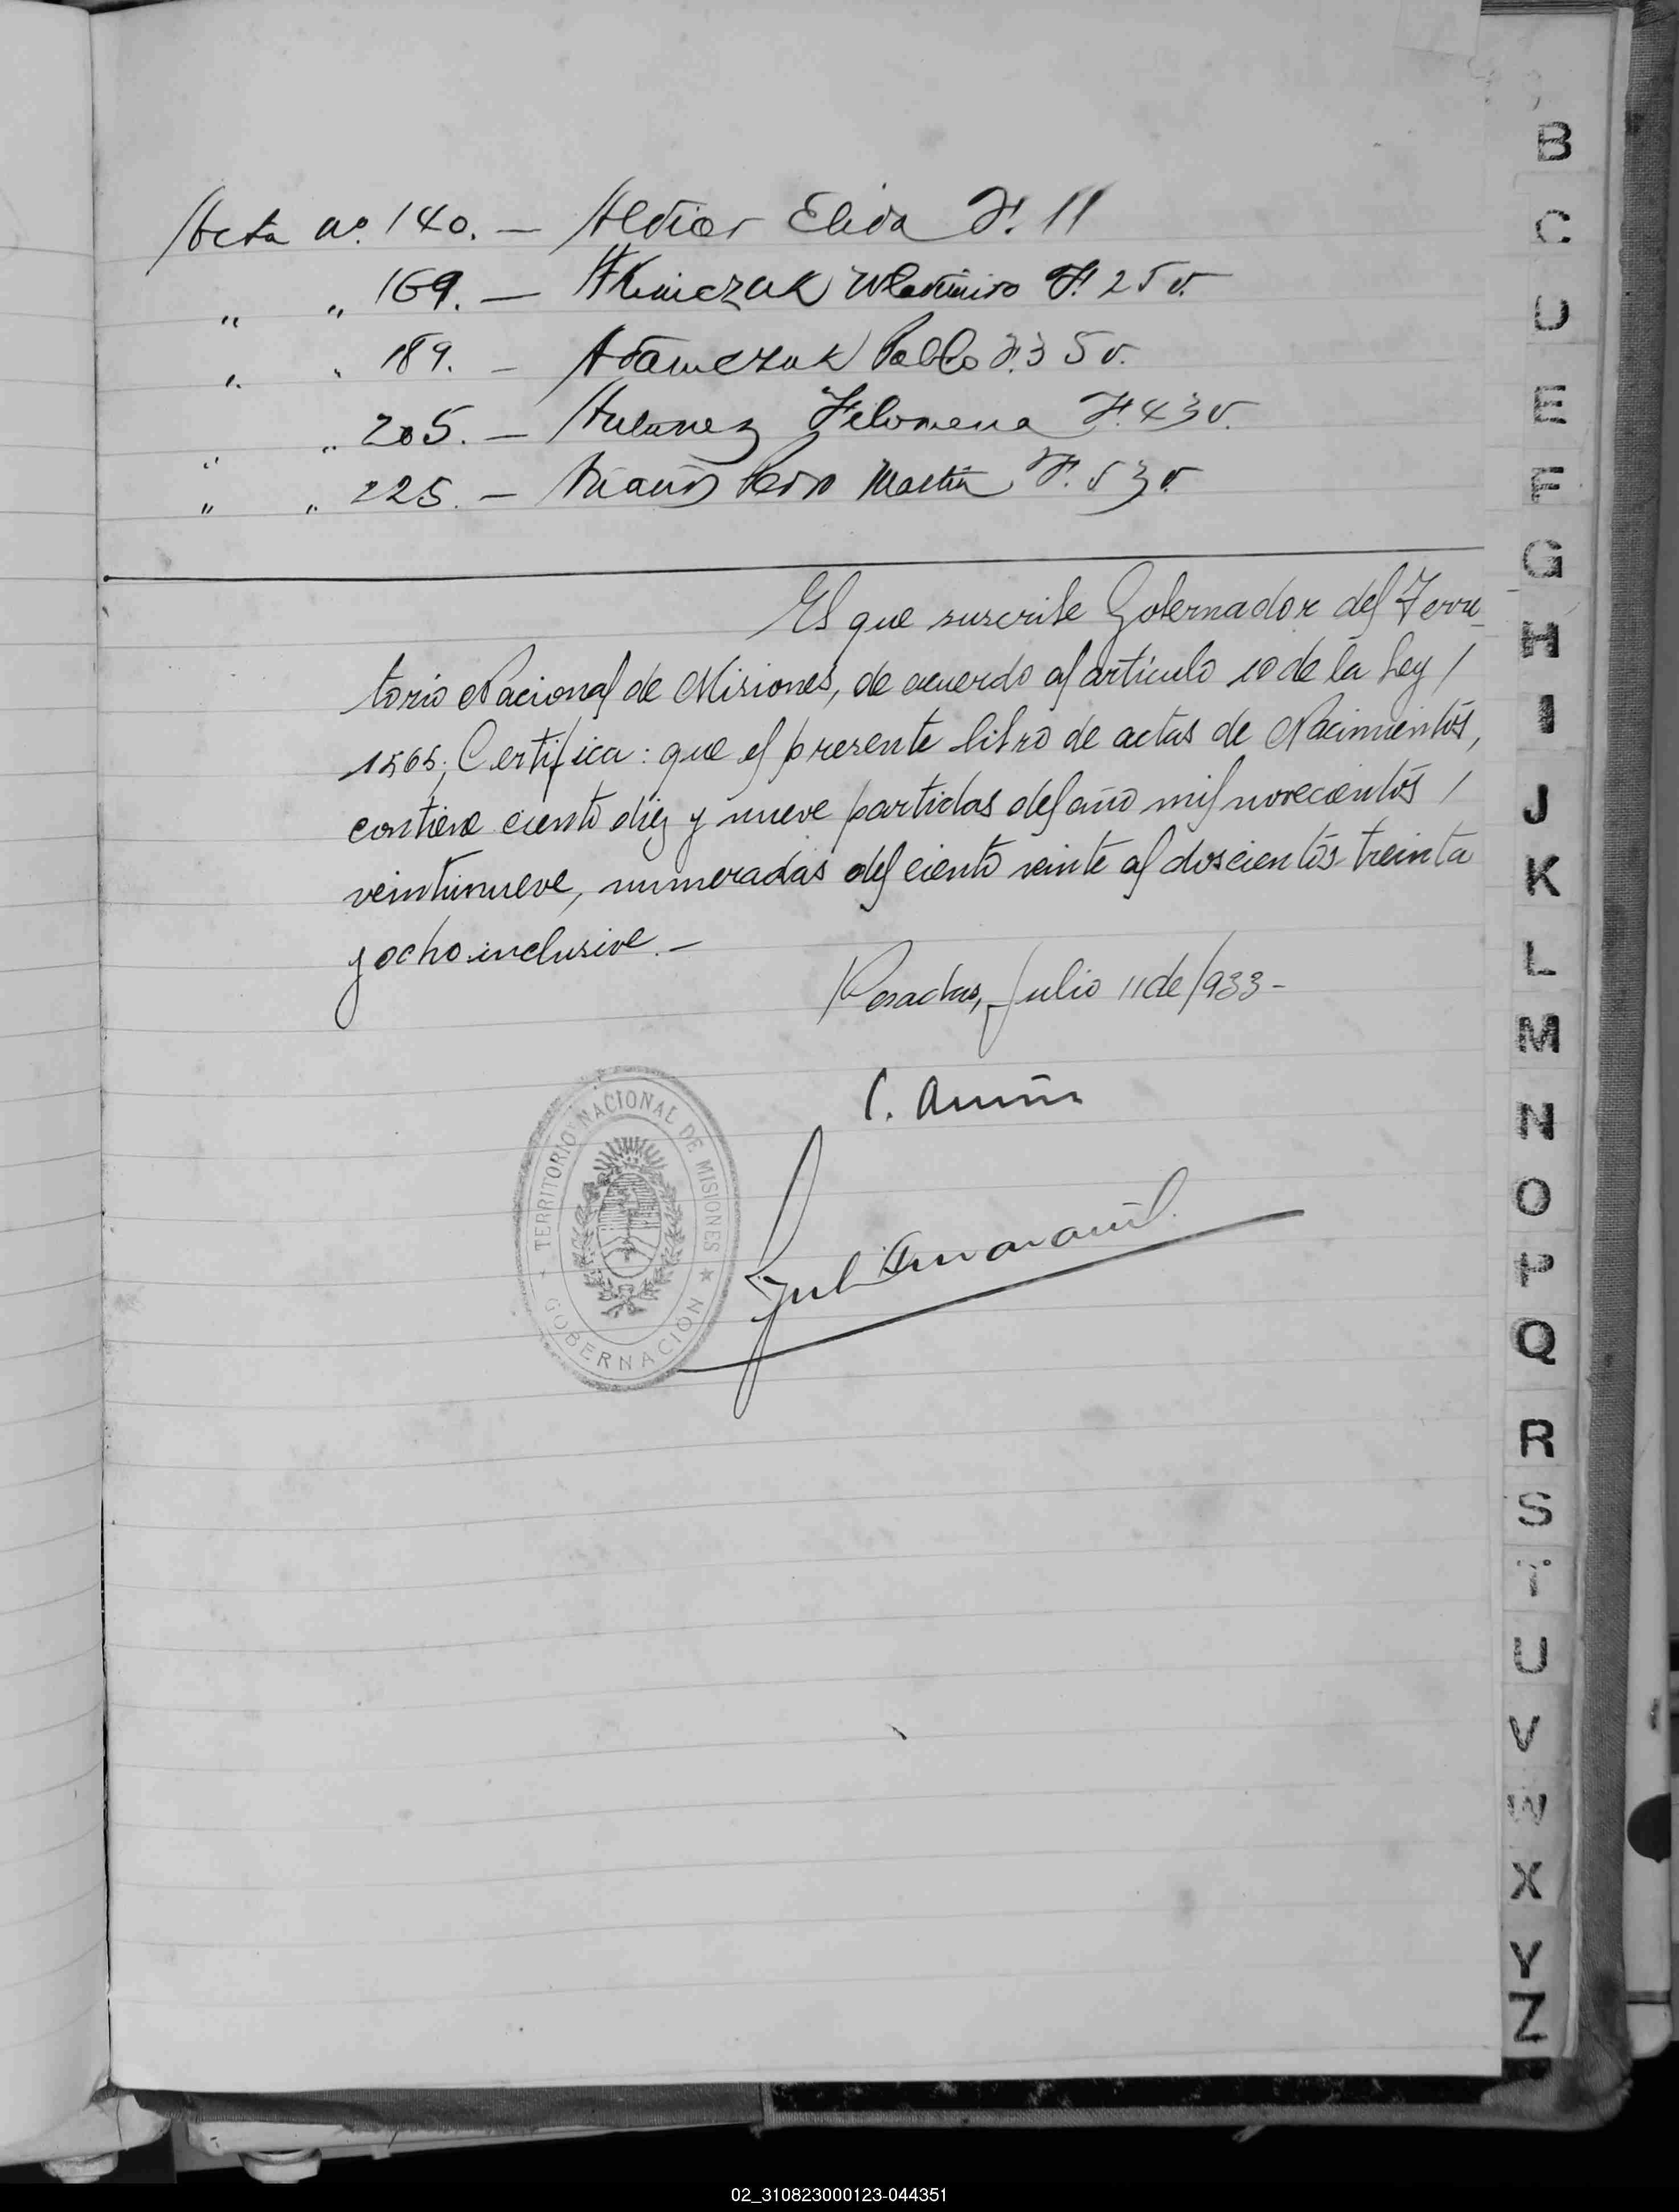 Acta nº. 140. — Aldior Elida F. 11
" " 169. — Wladimiro F. 25 v.
" " 189. — Adamczuk Pablo F. 35 v.
" " 205. — Filomena F. 43 v.
" " 225. — Pedro Martin F. 53 v.
El que suscribe Gobernador del Terri_
torio Nacional de Misiones, de acuerdo al artículo 10 de la Ley /
1565; Certifica: que el presente libro de actas de Nacimientos,
contiene ciento diez y nueve partidas del año mil novecientos /
veintinueve, numeradas del ciento veinte al doscientos treinta
y ocho inclusive. —
Posadas, Julio 11 de 1933 -
TERRITORIO NACIONAL DE MISIONES
GOBERNACIÓN
B
C
D
E
F
G
H
I
J
K
L
M
N
O
P
Q
R
S
T
U
V
W
X
Y
Z
02_310823000123-044351